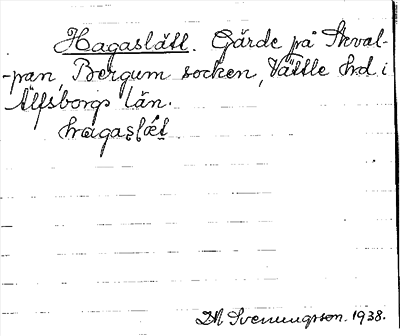 Hagaslätt. Gärde på Skval-
-pan, Bergum socken, Vättle hrd. i
Älfsborgs län.
hagaslæt.
Svenungsson. 1938.